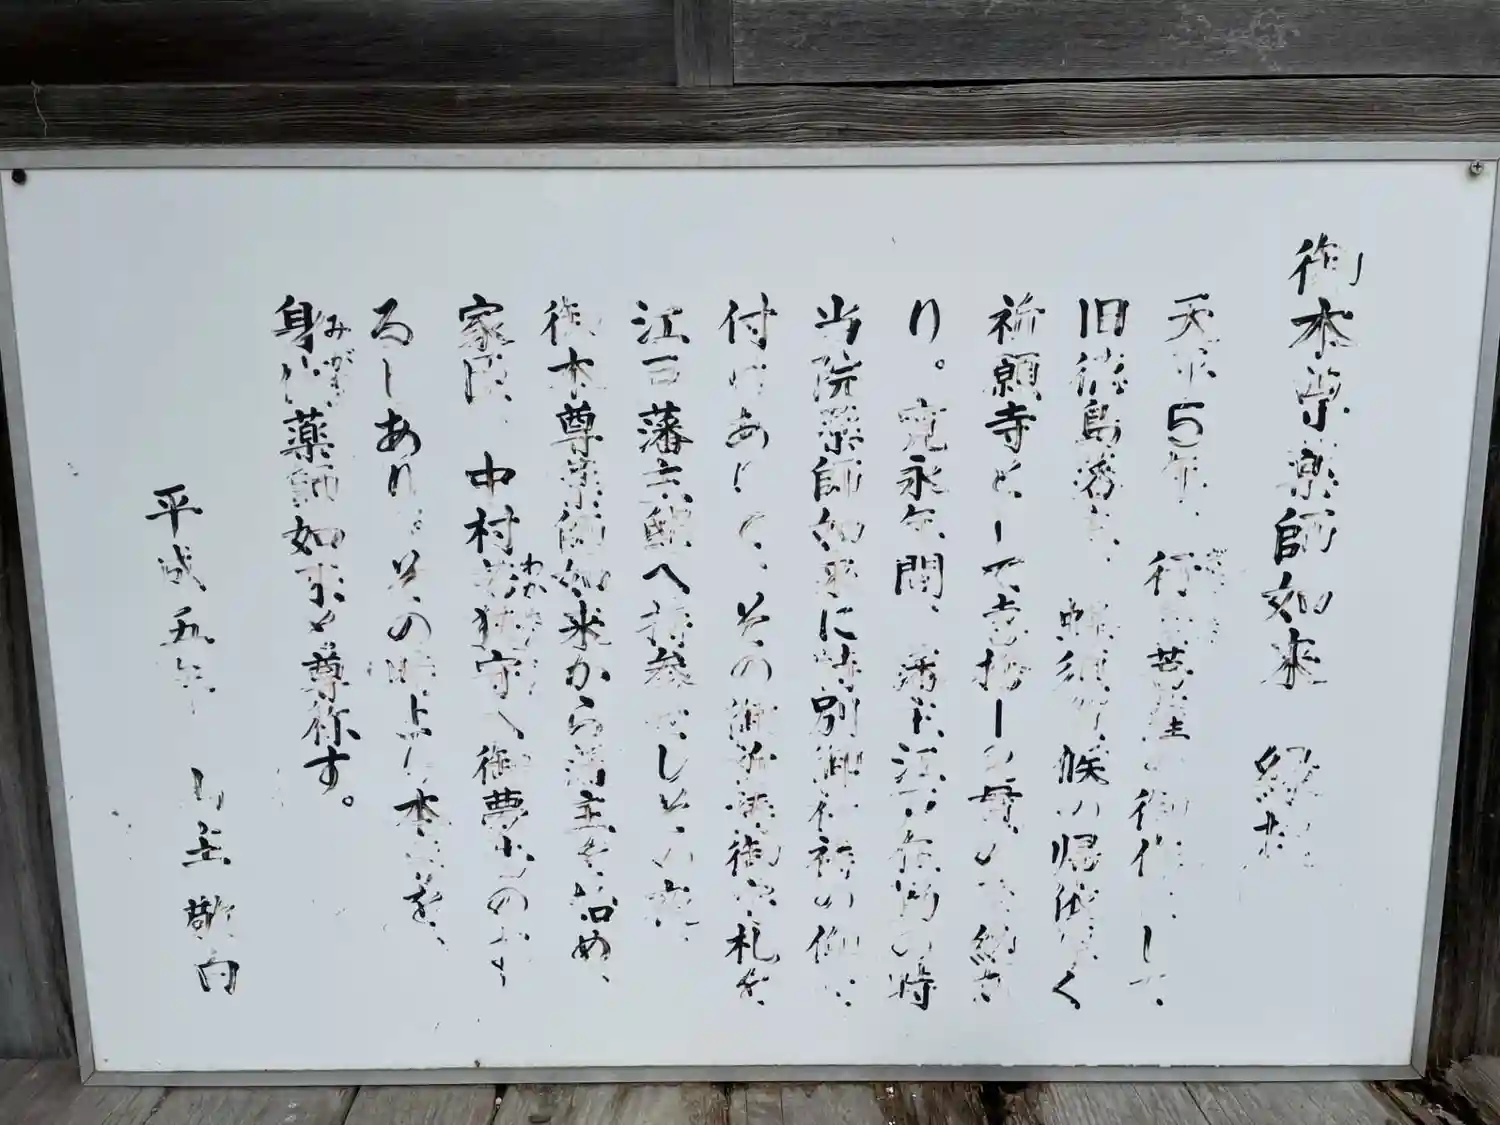 御本尊薬師如来 縁起
天平5年、行基菩薩の御作にして、
旧徳島藩主、蜂須賀候の帰依厚く
祈願寺として
り。寛永年間、藩主江戸在府の時
当院薬師如来に特別御祈祷の御
付けありて、その御祈祷御守札を、
江戸藩主邸へ持参せしその夜、
御本尊薬師如来から藩主を始め、
家臣、中村若狭守へ御夢想のお
るしあり、その時より本尊を、
身代薬師如来と尊称す。
平成五年 山主 敬白